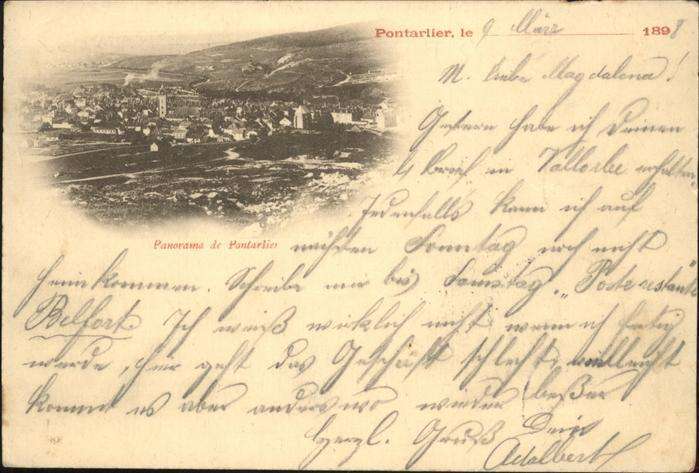 Pontarlier, le 9 März 1898
M. liebe Magdalena!
Gestern habe ich Deinen
l. Brief in Vallorbe erhalten
Jedenfalls kann ich auf
Panorama de Pontarlier
nächsten Sonntag noch nicht
heimkommen. Schreibe mir bis Samstag „Poste restante
Belfort. Ich weiß wirklich nicht wenn ich fertig
werde, hier geht das Geschäft schlecht, vielleicht
kommt es aber anderswo wieder besser
Herzl. Gruß Dein
Adalbert